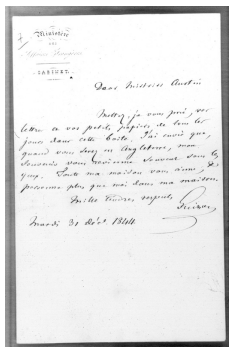 Ministère
des
Affaires Étrangères
CABINET.
Dear Mistriss Austin
Mettez, je vous prie, vos
lettres et vos petits papiers de tous les
jours dans cette boîte. J'ai envie que,
quand vous serez en Angleterre, mon
souvenir vous revienne souvent sous les
yeux. Toute ma maison vous aime, et
personne plus que moi dans ma maison.
Mille tendres respects
Guizot
Mardi 31 déc. 1844